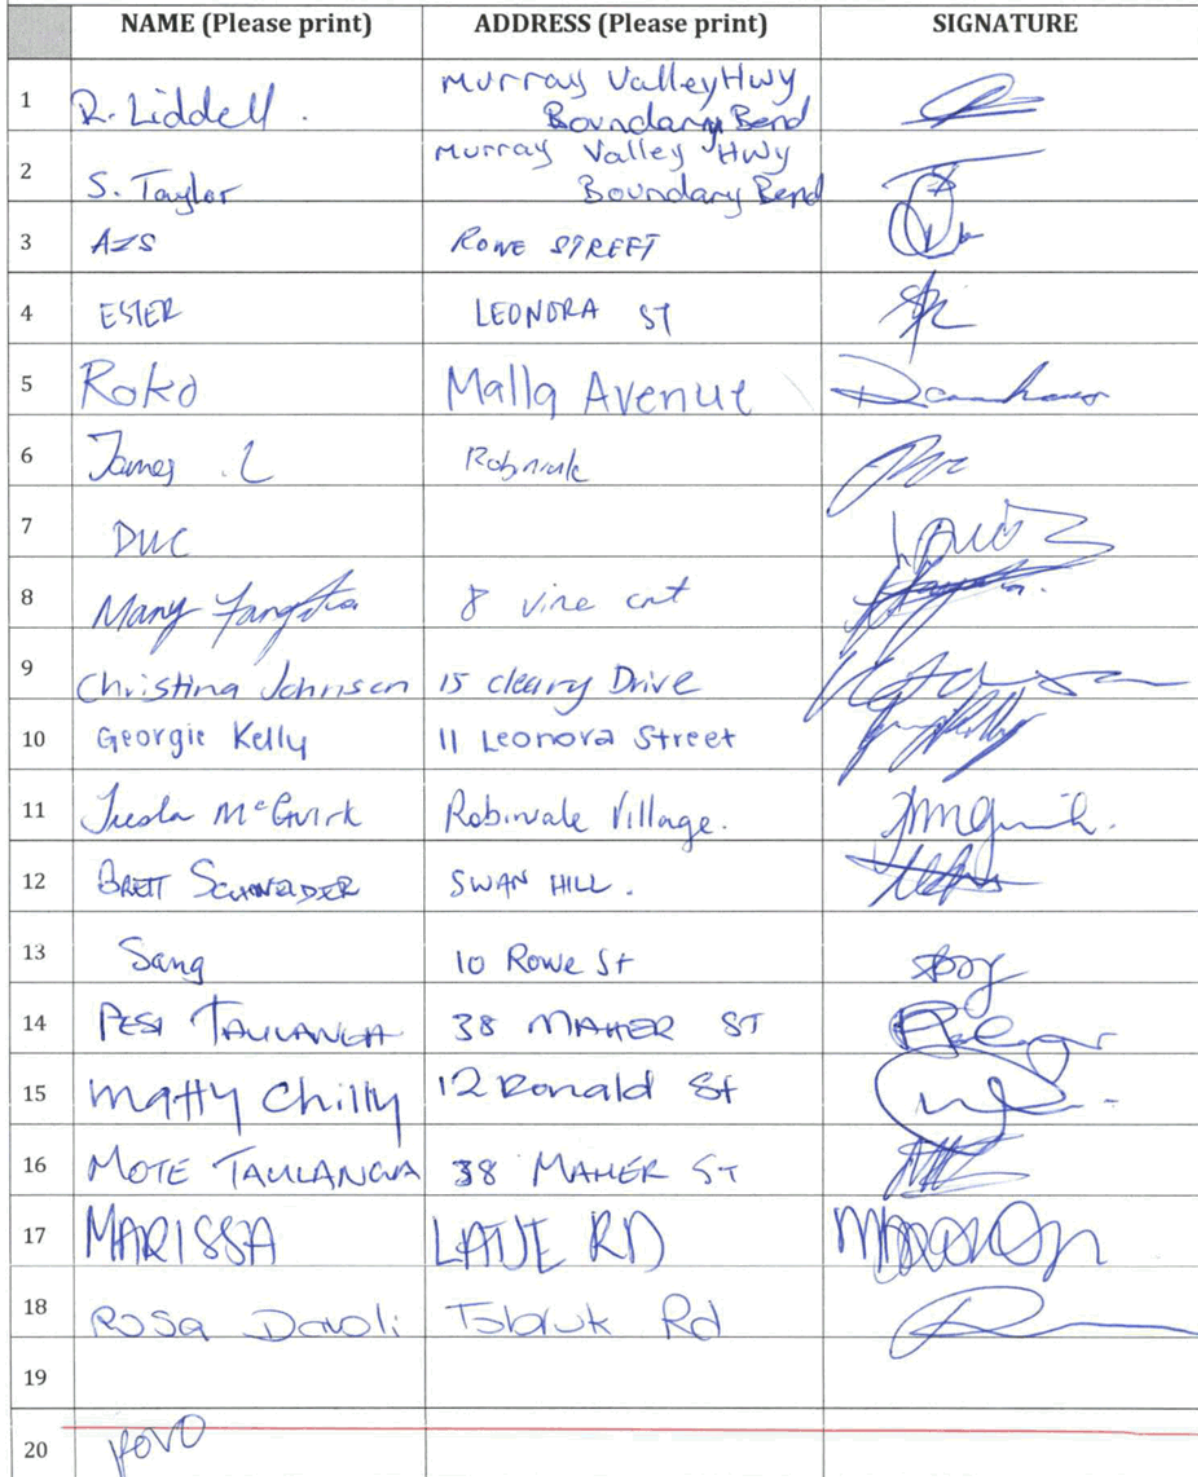 NAME (Please print) ADDRESS (Please print) SIGNATURE
1 R. Liddell. Murray Valley Hwy
Boundary Bend
2 S. Taylor Murray Valley Hwy
Boundary Bend
3 AZS ROWE STREET
4 ESTER LEONORA ST
5 Roko Malla Avenue
6 James .L Robinvale
7 DUC
8 Mary 8 vine crt
9 Christina Johnson 15 cleary Drive
10 Georgie Kelly 11 Leonora Street
11 McGuirk Robinvale Village.
12 BRETT SCHNEIDER SWAN HILL.
13 Sang 10 Rowe St
14 PESI TAULANGA 38 MAHER ST
15 Matty Chilly 12 Ronald St
16 MOTE TAULANGA 38 MAHER ST
17 MARISSA LATJE RD
18 Rosa Davoli Tobruk Rd
19
20